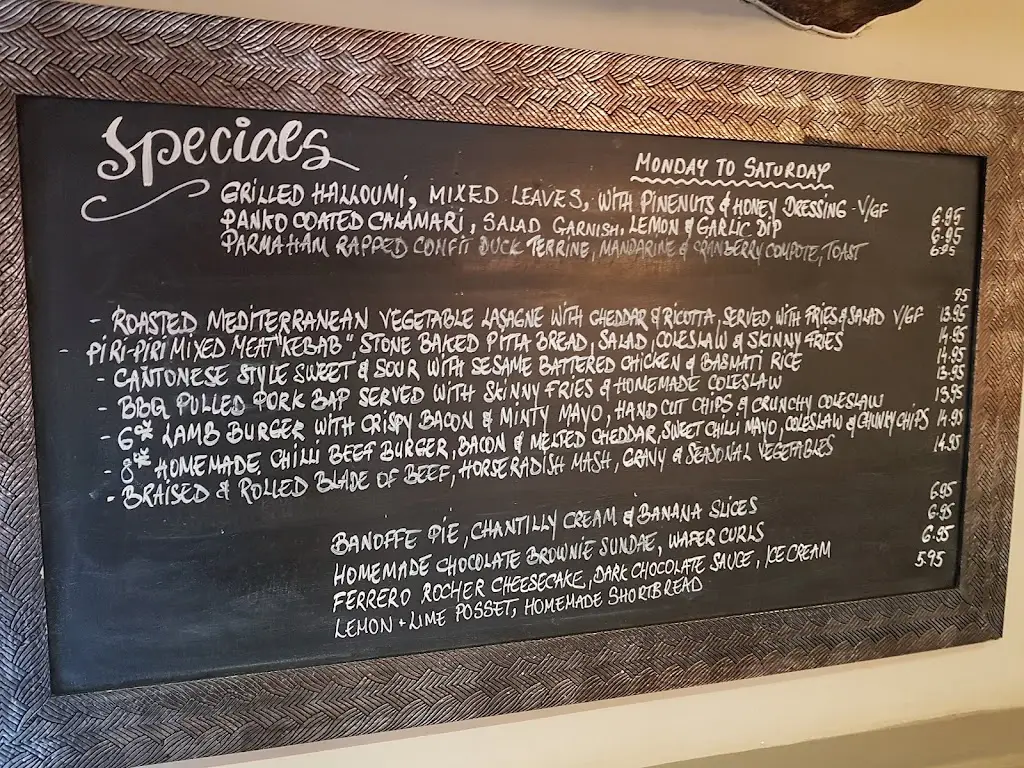 Specials
MONDAY TO SATURDAY
GRILLED HALLOUMI, MIXED LEAVES, WITH PINENUTS & HONEY DRESSING - V/GF 6.95
PANKO COATED CALAMARI, SALAD GARNISH, LEMON & GARLIC DIP 6.95
PARMAHAM RAPPED CONFIT DUCK TERRINE, MANDARINE & CRANBERRY COMPOTE, TOAST 6.95
- ROASTED MEDITERRANEAN VEGETABLE LASAGNE WITH CHEDDAR & RICOTTA, SERVED WITH FRIES & SALAD V/GF 13.95
- PIRI-PIRI MIXED MEAT "KEBAB", STONE BAKED PITTA BREAD, SALAD, COLESLAW & SKINNY FRIES 14.95
- CANTONESE STYLE SWEET & SOUR WITH SESAME BATTERED CHICKEN & BASMATI RICE 14.95
- BBQ PULLED PORK BAP SERVED WITH SKINNY FRIES & HOMEMADE COLESLAW 13.95
- 6oz LAMB BURGER WITH CRISPY BACON & MINTY MAYO, HAND CUT CHIPS & CRUNCHY COLESLAW 13.95
- 8oz HOMEMADE CHILLI BEEF BURGER, BACON & MELTED CHEDDAR, SWEET CHILLI MAYO, COLESLAW & CHUNKY CHIPS 14.95
- BRAISED & ROLLED BLADE OF BEEF, HORSERADISH MASH, GRAVY & SEASONAL VEGETABLES 14.95
BANOFFE PIE, CHANTILLY CREAM & BANANA SLICES 6.95
HOMEMADE CHOCOLATE BROWNIE SUNDAE, WAFER CURLS 6.95
FERRERO ROCHER CHEESECAKE, DARK CHOCOLATE SAUCE, ICE CREAM 6.95
LEMON + LIME POSSET, HOMEMADE SHORTBREAD 5.95